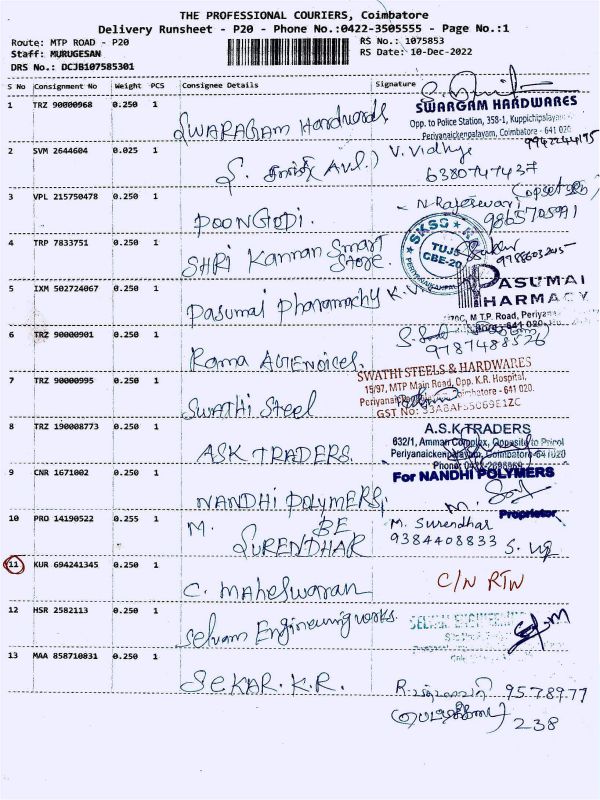 THE PROFESSIONAL COURIERS, Coimbatore
Delivery Runsheet - P20 - Phone No.:0422-3505555 - Page No.:1
Route: MTP ROAD - P20
RS No.: 1075853
Staff: MURUGESAN
RS Date: 10-Dec-2022
DRS No.: DCJB107585301
S No Consignment No Weight PCS Consignee Details Signature
1 TRZ 90000968 0.250 1 SWARAGAM Hardwards
SWARGAM HARDWARES
Opp. to Police Station, 358-1, Kuppichipalayam
Periyanaickenpalayam, Coimbatore - 641 020
2 SVM 2644604 0.025 1 S. V. Vidhya
6380747437
3 VPL 215750478 0.250 1 POONGODI. N. Rajeswari
9865705991
4 TRP 7833751 0.250 1 SHRI Kannan Smart Store.
SKSS
TUJS
CBE-20
5 IXM 502724067 0.250 1 Pasumai Pharamachy K.V.
PASUMAI
PHARMACY
M.T.P. Road, Periyana
641 020
6 TRZ 90000901 0.250 1 Rama
9787488526
7 TRZ 90000995 0.250 1 Swathi Steel
SWATHI STEELS & HARDWARES
15/97, MTP Main Road, Opp. K.R. Hospital,
Coimbatore - 641 020.
GST No:
8 TRZ 190008773 0.250 1 ASK TRADERS.
A.S.K TRADERS
632/1, Amman Complex, Opposite to Pricol
Periyanaickenpalayam, Coimbatore-641020
Phone:
9 CNR 1671002 0.250 1 NANDHI POLYMERS,
For NANDHI POLYMERS
Proprietor
10 PRO 14190522 0.255 1 M. SURENDHAR BE
M. Surendhar
9384408833
11 KUR 694241345 0.250 1 C. Maheswaran C/N RTN
12 HSR 2582113 0.250 1 Selvam Engineering works.
SELVAM ENGINEERING
13 MAA 858710831 0.250 1 SEKAR. K.R.
9578977
238